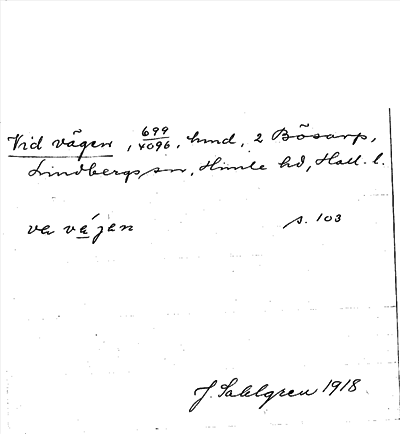 Vid vägen, 699/4096, hmd, 2 Bösarp,
Lindbergs sn, Himle hd, Hall. l.
va vä́jen s. 103
J. Sahlgren 1918